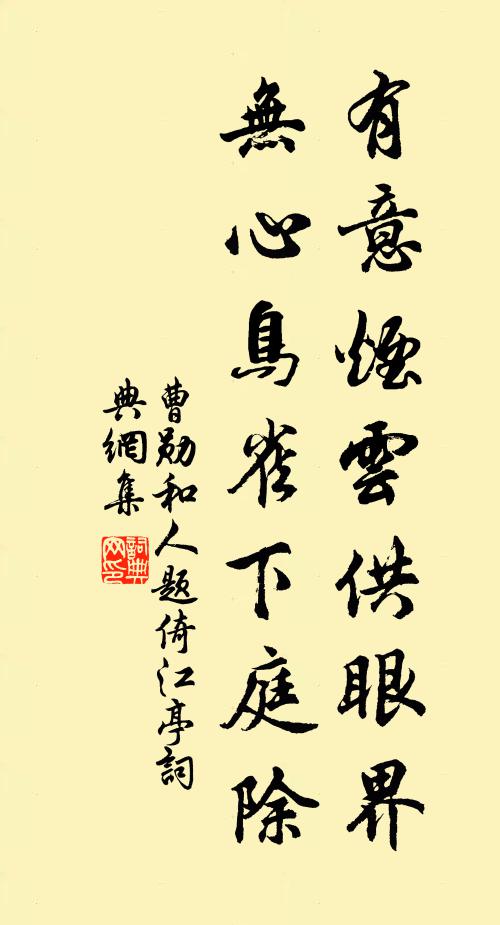 有意煙雲供眼界
無心鳥雀下庭除
曹勛和人題倚江亭詞
典網集
詞典網印